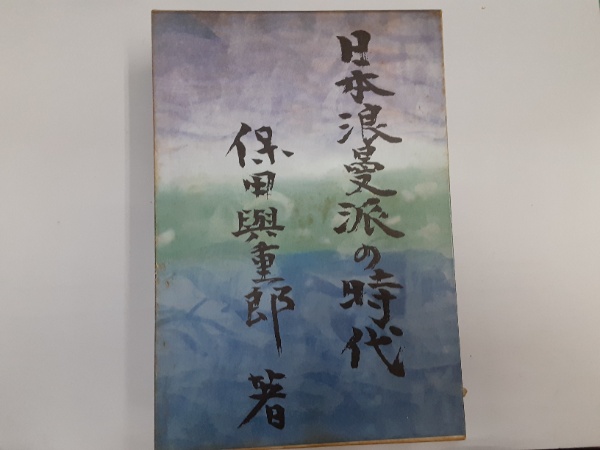 日本浪曼派の時代
保田與重郎 著